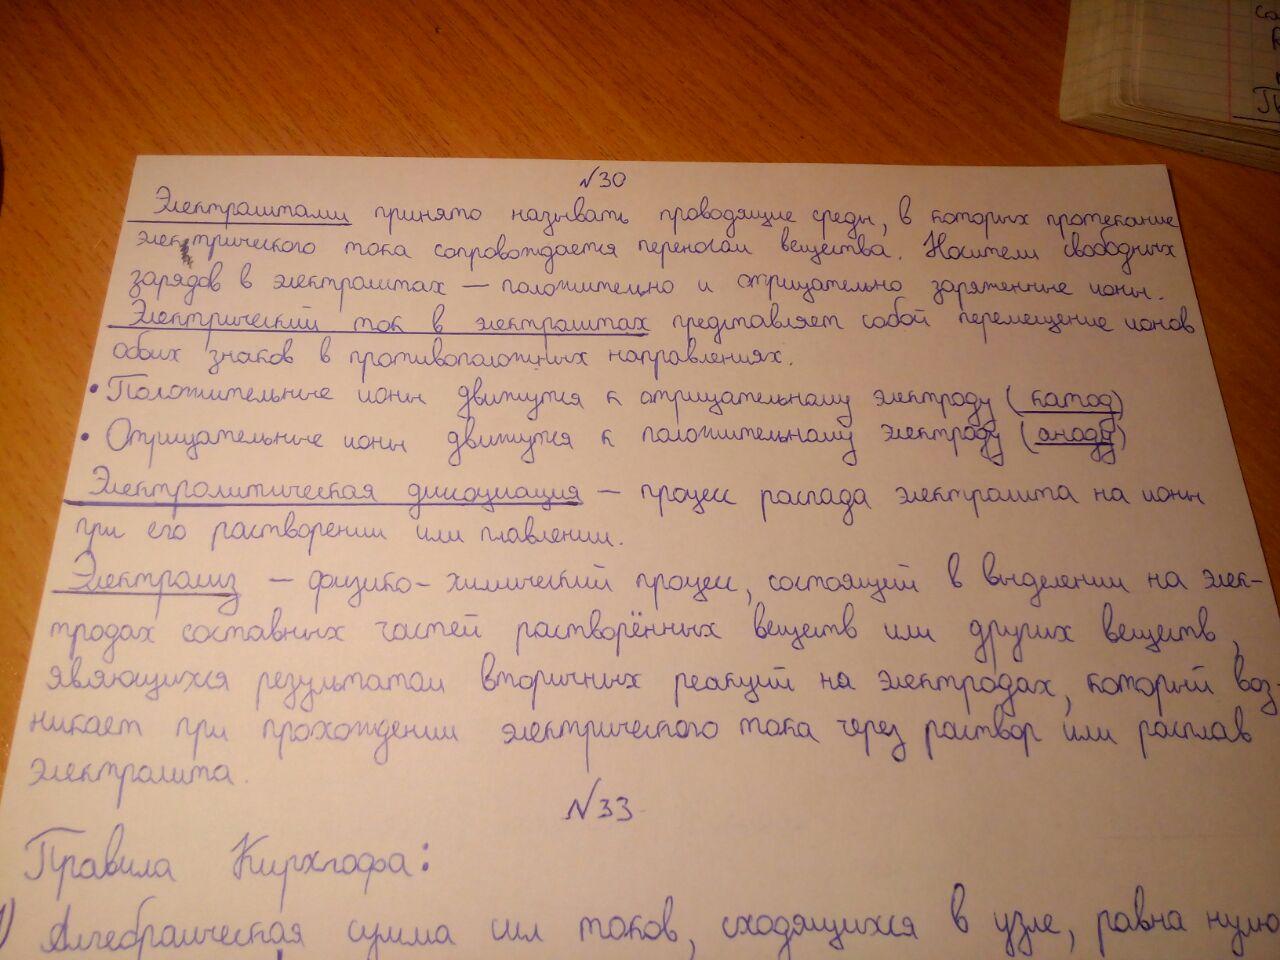 №30
Электролитами принято называть проводящие среды, в которых протекание
электрического тока сопровождается переносом вещества. Носители свободных
зарядов в электролитах — положительно и отрицательно заряженные ионы.
Электрический ток в электролитах представляет собой перемещение ионов
обоих знаков в противоположных направлениях.
• Положительные ионы движутся к отрицательному электроду (катод)
• Отрицательные ионы движутся к положительному электроду (аноду)
Электролитическая диссоциация — процесс распада электролита на ионы
при его растворении или плавлении.
Электролиз — физико-химический процесс, состоящий в выделении на элек-
тродах составных частей растворённых веществ или других веществ,
являющихся результатом вторичных реакций на электродах, который воз-
никает при прохождении электрического тока через раствор или расплав
электролита.
№33
Правила Кирхгофа:
1) Алгебраическая сумма сил токов, сходящихся в узле, равна нулю